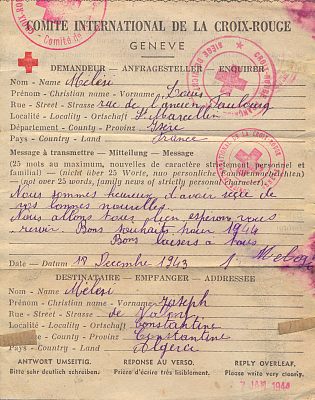 COMITÉ INTERNATIONAL DE LA CROIX-ROUGE
GENÈVE
DEMANDEUR — ANFRAGESTELLER — ENQUIRER
Nom - Name Mélesi
Prénom - Christian name - Vorname Louis
Rue - Street - Strasse rue de l'ancien Faubourg
Localité - Locality - Ortschaft St Marcellin
Département - County - Provinz Isère
Pays - Country - Land France
Message à transmettre — Mitteilung — Message
(25 mots au maximum, nouvelles de caractère strictement personnel et
familial) — (nicht über 25 Worte, nur persönliche Familiennachrichten)
— (not over 25 words, family news of strictly personal character).
Nous sommes heureux d'avoir reçu de
vos bonnes nouvelles.
Nous allons tous bien espérons vous
revoir. Bons souhaits pour 1944
Bons baisers à tous
Date — Datum 17 Decembre 1943
DESTINATAIRE — EMPFÄNGER — ADDRESSEE
Nom - Name Mélesi
Prénom - Christian name - Vorname Joseph
Rue - Street - Strasse de
Localité - Locality - Ortschaft Constantine
Province - County - Provinz Constantine
Pays - Country - Land Algérie
ANTWORT UMSEITIG. RÉPONSE AU VERSO. REPLY OVERLEAF.
Bitte sehr deutlich schreiben. Prière d'écrire très lisiblement. Please write very clearly.
JAN 1944